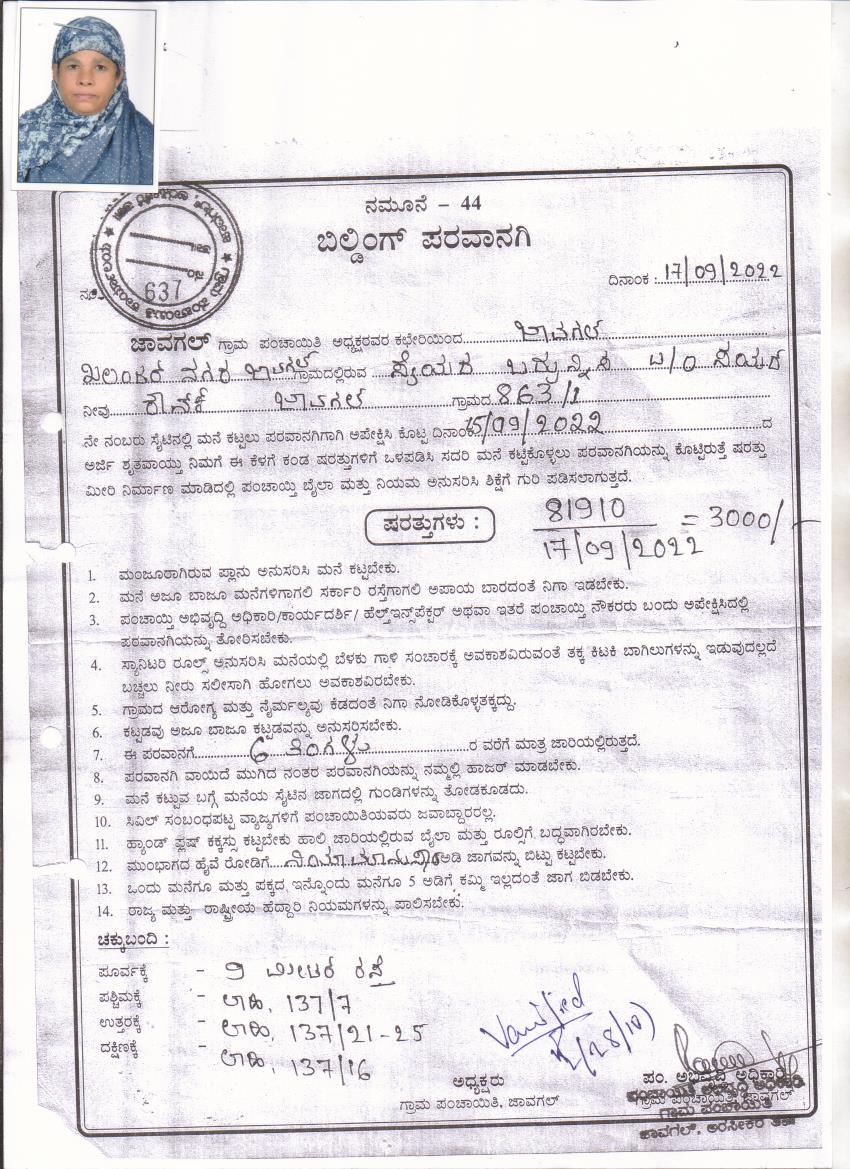 ನಮೂನೆ – 44
ಬಿಲ್ಡಿಂಗ್ ಪರವಾನಗಿ
637
ದಿನಾಂಕ : 17/09/2022
ಜಾವಗಲ್ ಗ್ರಾಮ ಪಂಚಾಯಿತಿ ಅಧ್ಯಕ್ಷರವರ ಕಛೇರಿಯಿಂದ ಜಾವಗಲ್
ನಗರ ಜಾವಗಲ್ ಗ್ರಾಮದಲ್ಲಿರುವ
ನೀವು ಜಾವಗಲ್ ಗ್ರಾಮದ 863/1
ನೇ ನಂಬರು ಸೈಟಿನಲ್ಲಿ ಮನೆ ಕಟ್ಟಲು ಪರವಾನಗಿಗಾಗಿ ಅಪೇಕ್ಷಿಸಿ ಕೊಟ್ಟ ದಿನಾಂಕ 15/09/2022 ದ
ಅರ್ಜಿ ಶೃತವಾಯ್ತು ನಿಮಗೆ ಈ ಕೆಳಗೆ ಕಂಡ ಷರತ್ತುಗಳಿಗೆ ಒಳಪಡಿಸಿ ಸದರಿ ಮನೆ ಕಟ್ಟಿಕೊಳ್ಳಲು ಪರವಾನಗಿಯನ್ನು ಕೊಟ್ಟಿರುತ್ತೆ ಷರತ್ತು
ಮೀರಿ ನಿರ್ಮಾಣ ಮಾಡಿದಲ್ಲಿ ಪಂಚಾಯ್ತಿ ಬೈಲಾ ಮತ್ತು ನಿಯಮ ಅನುಸರಿಸಿ ಶಿಕ್ಷೆಗೆ ಗುರಿ ಪಡಿಸಲಾಗುತ್ತದೆ.
ಷರತ್ತುಗಳು :
81910
17/09/2022
= 3000/-
1. ಮಂಜೂರಾಗಿರುವ ಪ್ಲಾನು ಅನುಸರಿಸಿ ಮನೆ ಕಟ್ಟಬೇಕು.
2. ಮನೆ ಅಜೂ ಬಾಜೂ ಮನೆಗಳಿಗಾಗಲಿ ಸರ್ಕಾರಿ ರಸ್ತೆಗಾಗಲಿ ಅಪಾಯ ಬಾರದಂತೆ ನಿಗಾ ಇಡಬೇಕು.
3. ಪಂಚಾಯ್ತಿ ಅಭಿವೃದ್ಧಿ ಅಧಿಕಾರಿ/ಕಾರ್ಯದರ್ಶಿ/ ಹೆಲ್ತ್‌ಇನ್ಸ್‌ಪೆಕ್ಟರ್ ಅಥವಾ ಇತರೆ ಪಂಚಾಯ್ತಿ ನೌಕರರು ಬಂದು ಅಪೇಕ್ಷಿಸಿದಲ್ಲಿ
ಪರವಾನಗಿಯನ್ನು ತೋರಿಸಬೇಕು.
4. ಸ್ಯಾನಿಟರಿ ರೂಲ್ಸ್ ಅನುಸರಿಸಿ ಮನೆಯಲ್ಲಿ ಬೆಳಕು ಗಾಳಿ ಸಂಚಾರಕ್ಕೆ ಅವಕಾಶವಿರುವಂತೆ ತಕ್ಕ ಕಿಟಕಿ ಬಾಗಿಲುಗಳನ್ನು ಇಡುವುದಲ್ಲದೆ
ಬಚ್ಚಲು ನೀರು ಸಲೀಸಾಗಿ ಹೋಗಲು ಅವಕಾಶವಿರಬೇಕು.
5. ಗ್ರಾಮದ ಆರೋಗ್ಯ ಮತ್ತು ನೈರ್ಮಲ್ಯವು ಕೆಡದಂತೆ ನಿಗಾ ನೋಡಿಕೊಳ್ಳತಕ್ಕದ್ದು.
6. ಕಟ್ಟಡವು ಅಜೂ ಬಾಜೂ ಕಟ್ಟಡವನ್ನು ಅನುಸರಿಸಬೇಕು.
7. ಈ ಪರವಾನಗೆ 6 ತಿಂಗಳು ರ ವರೆಗೆ ಮಾತ್ರ ಜಾರಿಯಲ್ಲಿರುತ್ತದೆ.
8. ಪರವಾನಗಿ ವಾಯಿದೆ ಮುಗಿದ ನಂತರ ಪರವಾನಗಿಯನ್ನು ನಮ್ಮಲ್ಲಿ ಹಾಜರ್ ಮಾಡಬೇಕು.
9. ಮನೆ ಕಟ್ಟುವ ಬಗ್ಗೆ ಮನೆಯ ಸೈಟಿನ ಜಾಗದಲ್ಲಿ ಗುಂಡಿಗಳನ್ನು ತೋಡಕೂಡದು.
10. ಸಿವಿಲ್ ಸಂಬಂಧಪಟ್ಟ ವ್ಯಾಜ್ಯಗಳಿಗೆ ಪಂಚಾಯಿತಿಯವರು ಜವಾಬ್ದಾರರಲ್ಲ.
11. ಹ್ಯಾಂಡ್ ಫ್ಲಷ್ ಕಕ್ಕಸ್ಸು ಕಟ್ಟಬೇಕು ಹಾಲಿ ಜಾರಿಯಲ್ಲಿರುವ ಬೈಲಾ ಮತ್ತು ರೂಲ್ಸಿಗೆ ಬದ್ಧವಾಗಿರಬೇಕು.
12. ಮುಂಭಾಗದ ಹೈವೆ ರೋಡಿಗೆ ನಿಯಮಾನುಸಾರ ಅಡಿ ಜಾಗವನ್ನು ಬಿಟ್ಟು ಕಟ್ಟಬೇಕು.
13. ಒಂದು ಮನೆಗೂ ಮತ್ತು ಪಕ್ಕದ ಇನ್ನೊಂದು ಮನೆಗೂ 5 ಅಡಿಗೆ ಕಮ್ಮಿ ಇಲ್ಲದಂತೆ ಜಾಗ ಬಿಡಬೇಕು.
14. ರಾಜ್ಯ ಮತ್ತು ರಾಷ್ಟ್ರೀಯ ಹೆದ್ದಾರಿ ನಿಯಮಗಳನ್ನು ಪಾಲಿಸಬೇಕು.
ಚಕ್ಕುಬಂದಿ :
ಪೂರ್ವಕ್ಕೆ – 9 ಮೀಟರ ರಸ್ತೆ
ಪಶ್ಚಿಮಕ್ಕೆ – ಆಸ್ತಿ. 137/7
ಉತ್ತರಕ್ಕೆ – ಆಸ್ತಿ. 137/21-25
ದಕ್ಷಿಣಕ್ಕೆ – ಆಸ್ತಿ. 137/16
Verified
ಅಧ್ಯಕ್ಷರು
ಗ್ರಾಮ ಪಂಚಾಯಿತಿ, ಜಾವಗಲ್
ಪಂ. ಅಭಿವೃದ್ಧಿ ಅಧಿಕಾರಿ
ಗ್ರಾಮ ಪಂಚಾಯಿತಿ, ಜಾವಗಲ್
ಪಂಚಾಯಿತಿ ಅಭಿವೃದ್ಧಿ ಅಧಿಕಾರಿ
ಗ್ರಾಮ ಪಂಚಾಯಿತಿ
ಜಾವಗಲ್, ಅರಸೀಕೆರೆ ತಾ||